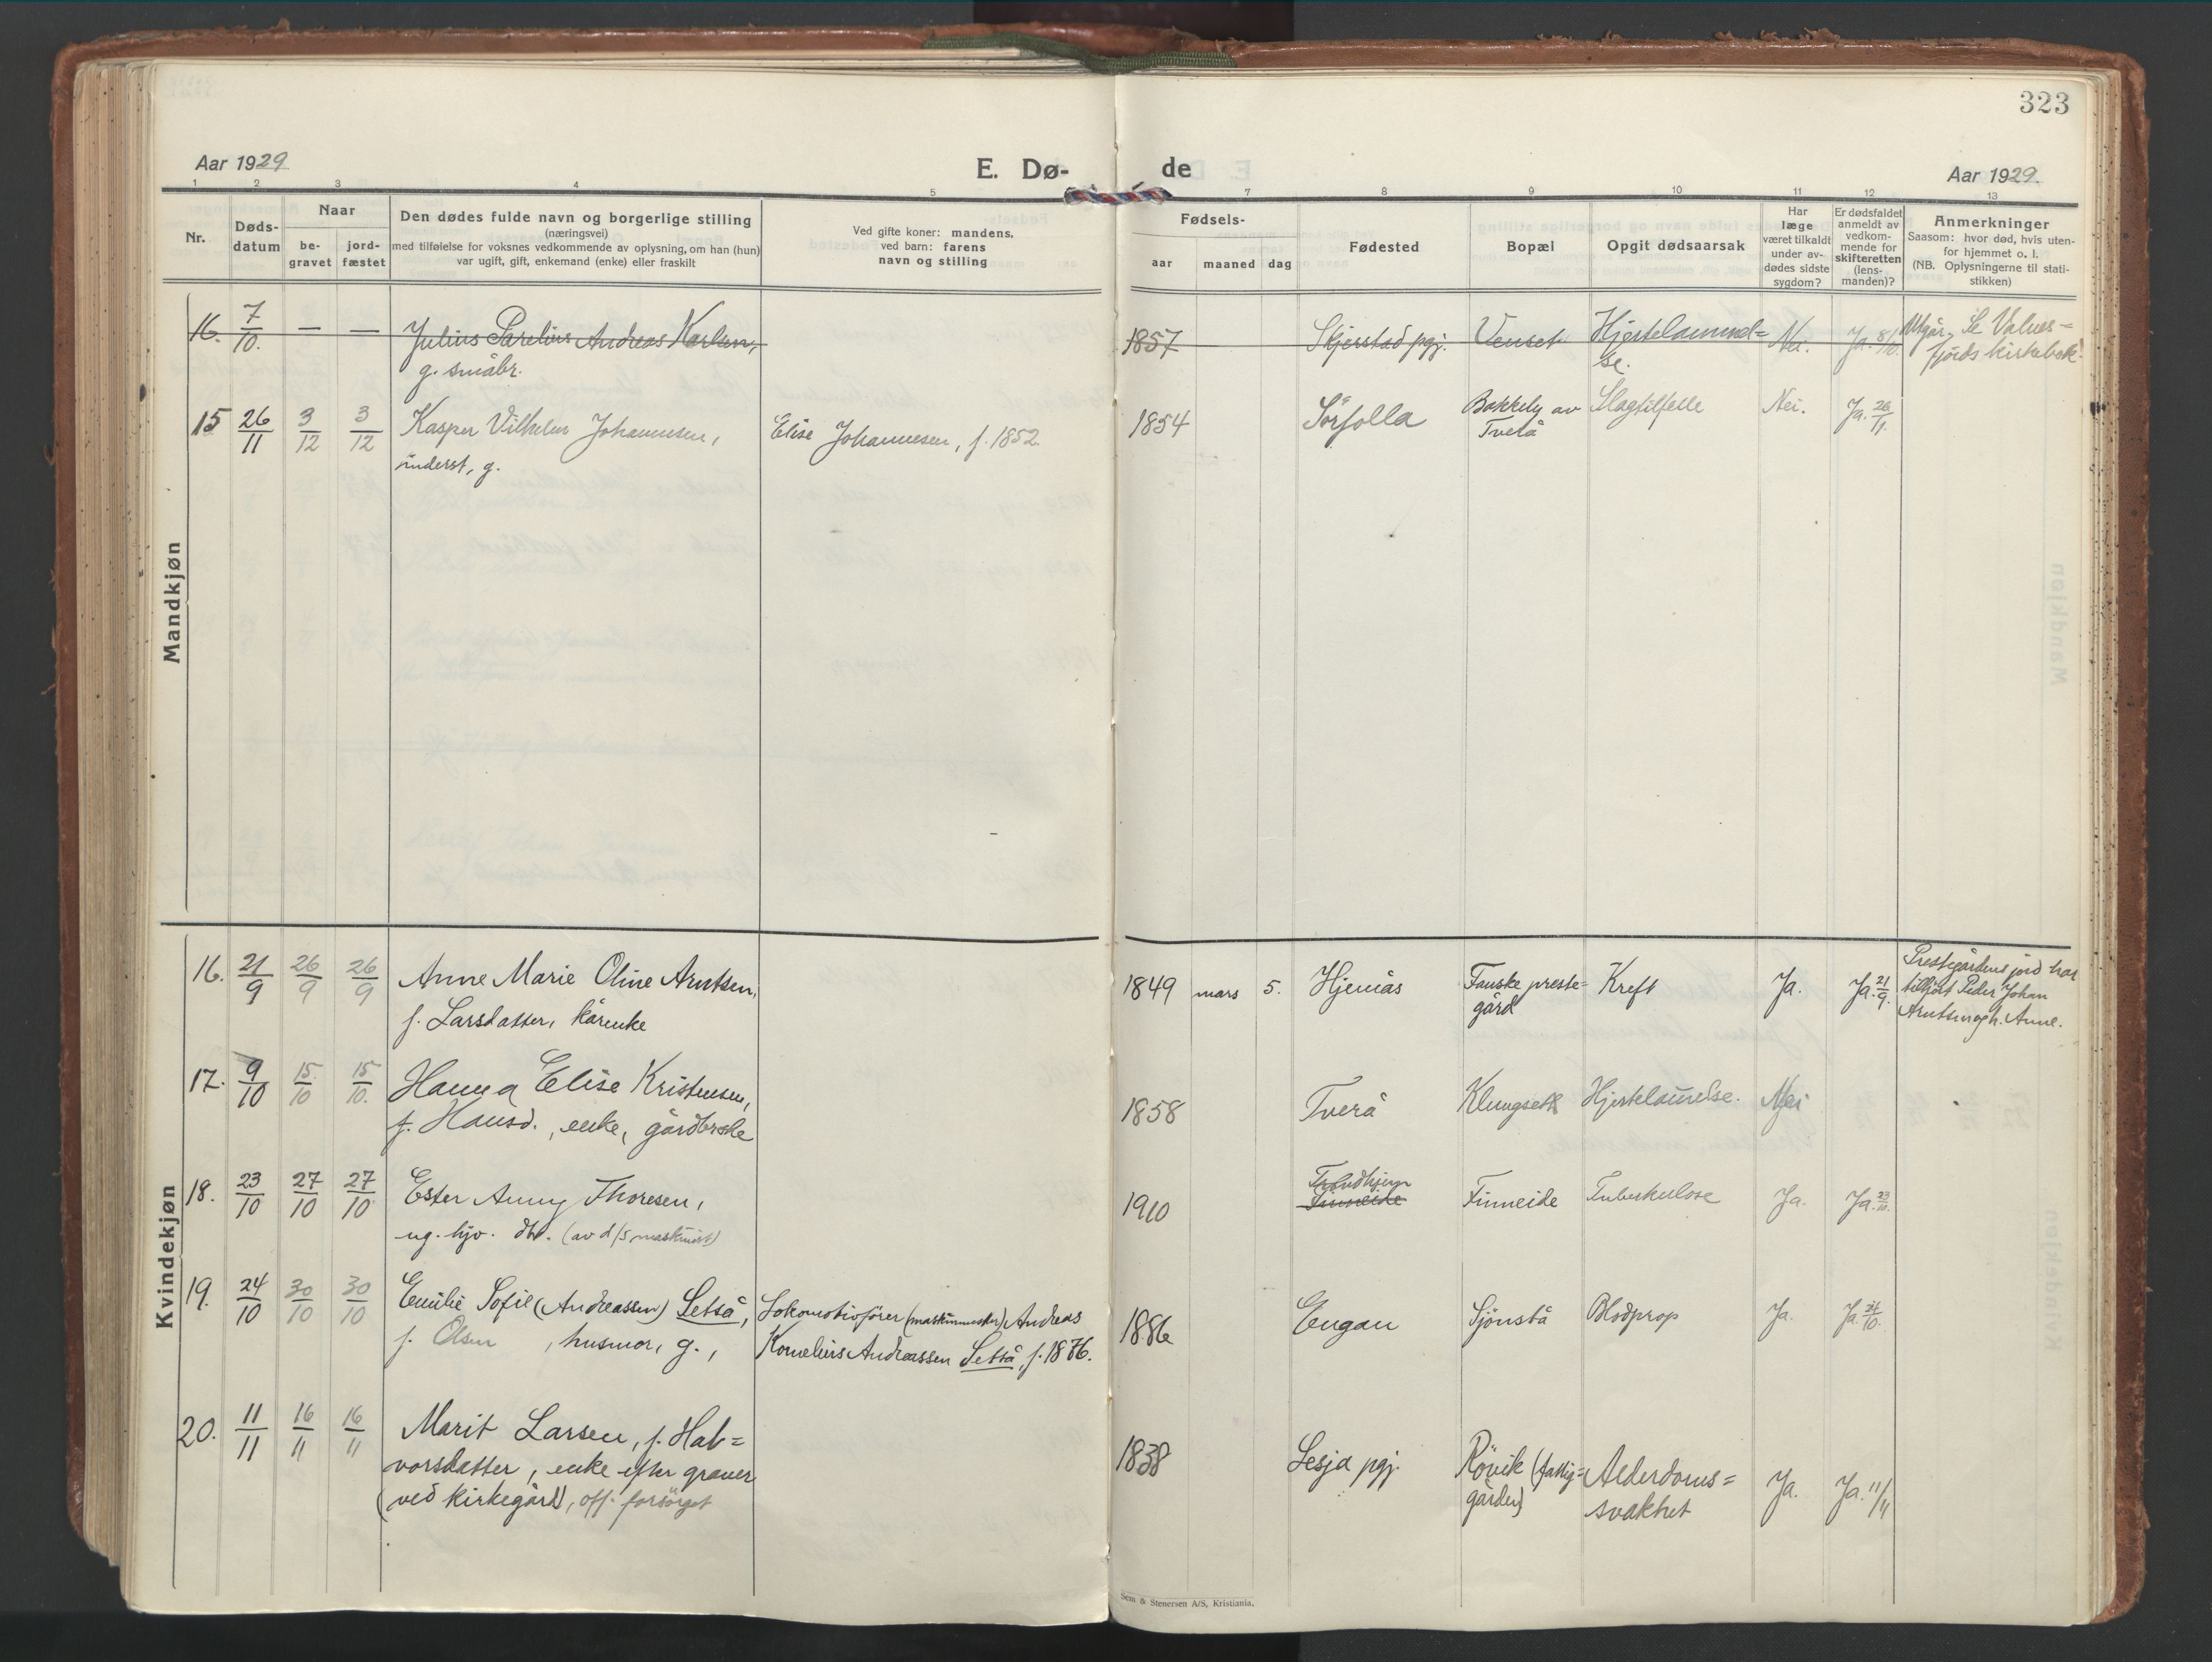 323
Aar 1929
E. Dø-
de
Aar 1929.
1 2 3 4 5 7 8 9 10 11 12 13
Nr.
Døds-
datum
Naar
be-
gravet
jord-
fæstet
Den dødes fulde navn og borgerlige stilling
(næringsvei)
med tilføielse for voksnes vedkommende av oplysning, om han (hun)
var ugift, gift, enkemand (enke) eller fraskilt
Ved gifte koner: mandens,
ved barn: farens
navn og stilling
Fødsels-
aar maaned dag
Fødested
Bopæl
Opgit dødsaarsak
Har
læge
været tilkaldt
under av-
dødes sidste
sygdom?
Er dødsfaldet
anmeldt av
vedkom-
mende for
skifteretten
(lens-
manden)?
Anmerkninger
Saasom: hvor død, hvis uten-
for hjemmet o. l.
(NB. Oplysningerne til stati-
stikken)
Mandkjøn
16. 7/10. — — Julius Parelius Andreas Karlsen, 1857 Skjerstad pgj. Venset Hjertelammel= Nei. Ja. 8/10. Utgår. Se Valnes=
g. småbr. se. fjords kirkebok.
15 26/11 3/12 3/12 Kasper Vilhelm Johannesen, Elise Johannesen, f. 1852. 1854 Sörfolla Bakkely av Slagtilfelle Nei. Ja. 26/11.
inderst, g. Tverå
Kvindekjøn
16. 21/9 26/9 26/9 Anne Marie Oline Arntsen, 1849 mars 5. Hjemås Fauske preste= Kreft Ja. Ja. 21/9. Prestegårdens jord har
f. Larsdatter, kårenke gård tilhört Peder Johan
Arntsen og h. Anne.
17. 9/10 15/10 15/10. Hanna Elise Kristensen, 1858 Tverå Klungseth Hjertelammelse. Nei
f. Hansd., enke, gårdbrske
18. 23/10 27/10 27/10 Ester Anny Thoresen, 1910 Trondhjem Finneide Tuberkulose Ja. Ja. 23/10.
ug. hjv. dtr. (av d/s maskinist) Finneide
19. 24/10 30/10 30/10 Emilie Sofie (Andreassen) Setså, Lokomotivförer (maskinmester) Andreas 1886 Engan Sjönstå Blodprop Ja. Ja. 24/10.
f. Olsen , husmor, g., Kornelius Andreassen Setså, f. 1876.
20. 11/11 16/11 16/11 Marit Larsen, f. Hal= 1838 Lesja pgj. Rövik (fattig= Alderdoms= Ja. Ja. 11/11
vorsdatter, enke efter graver gården) svakhet
(ved kirkegård), off. forsörget
Sem & Stenersen A/S, Kristiania.